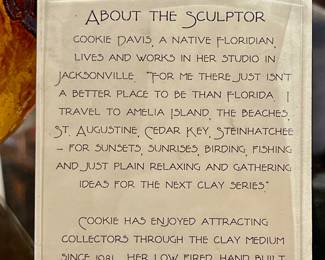 ABOUT THE SCULPTOR
COOKIE DAVIS, A NATIVE FLORIDIAN,
LIVES AND WORKS IN HER STUDIO IN
JACKSONVILLE. "FOR ME THERE JUST ISN'T
A BETTER PLACE TO BE THAN FLORIDA. I
TRAVEL TO AMELIA ISLAND, THE BEACHES,
ST. AUGUSTINE, CEDAR KEY, STEINHATCHEE
– FOR SUNSETS, SUNRISES, BIRDING, FISHING
AND JUST PLAIN RELAXING AND GATHERING
IDEAS FOR THE NEXT CLAY SERIES."
COOKIE HAS ENJOYED ATTRACTING
COLLECTORS THROUGH THE CLAY MEDIUM
SINCE 1981. HER LOW FIRED, HAND BUILT